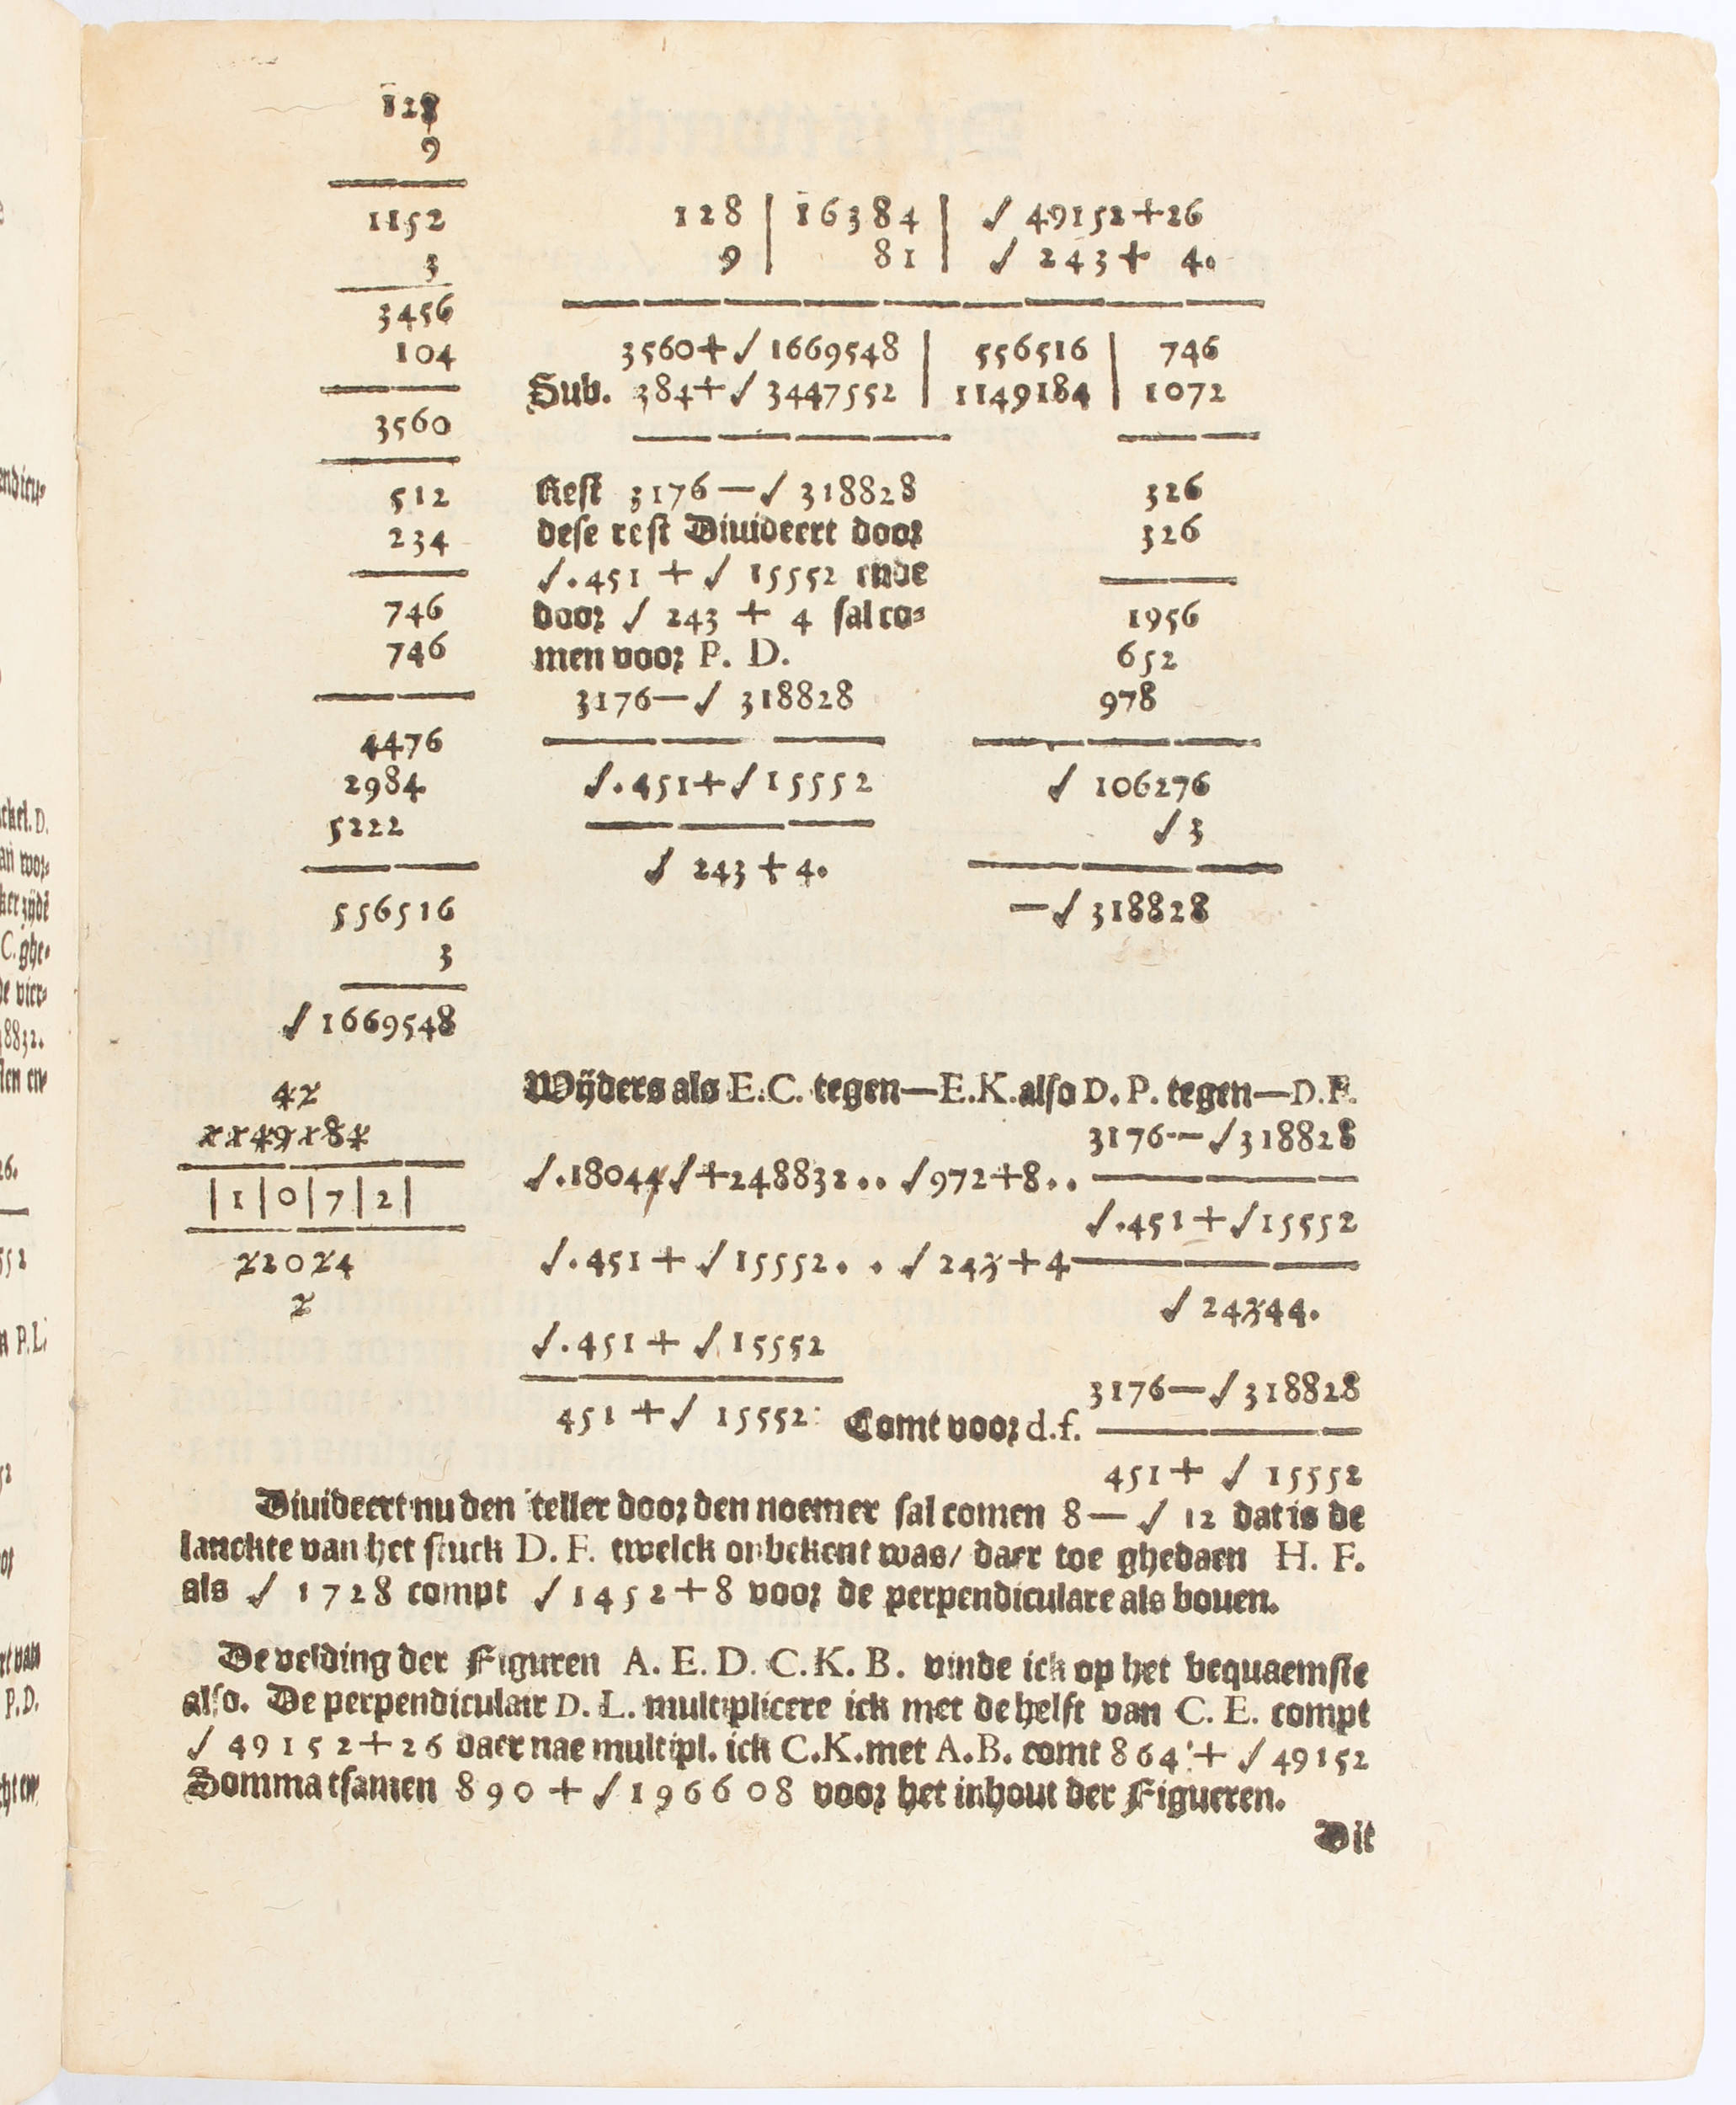 128
9
1152
3
3456
104
3560
512
234
746
746
4476
2984
5222
556516
3
√ 1669548
42
1149184
|1|0|7|2|
22024
2
128 | 16384 | √ 49152+26
9 | 81 | √ 243+ 4.
3560+√ 1669548 | 556516 | 746
Sub. 384+√ 3447552 | 1149184 | 1072
Rest 3176—√ 318828
dese rest Diuideert door
√.451 + √ 15552 ende
door √ 243 + 4 sal co-
men voor P. D.
3176—√ 318828
√.451+√ 15552
√ 243 + 4.
326
326
1956
652
978
√ 106276
√ 3
—√ 318828
Wijders als E.C. tegen—E.K. also D. P. tegen—D.F.
3176-—√ 318828
√.18044√+248832.. √972+8..
√.451+√15552
√.451 + √ 15552. . √ 243+4
√ 24344.
√.451 + √ 15552
3176—√ 318828
451 + √ 15552: Comt voor d.f.
451+ √ 15552
Diuideert nu den teller door den noemer sal comen 8— √ 12 dat is de
lanckte van het stuck D. F. twelck onbekent was/ daer toe ghedaen H. F.
als √ 1728 compt √ 1452+8 voor de perpendiculare als boven.
De velding der Figuren A. E. D. C. K. B. vinde ick op het bequaemste
also. De perpendiculair D. L. multiplicere ick met de helft van C. E. compt
√ 49152+26 daer nae multipl. ick C.K. met A.B. comt 864:+ √ 49152
Somma tsamen 890 + √ 196608 voor het inhout der Figueren.
Dit